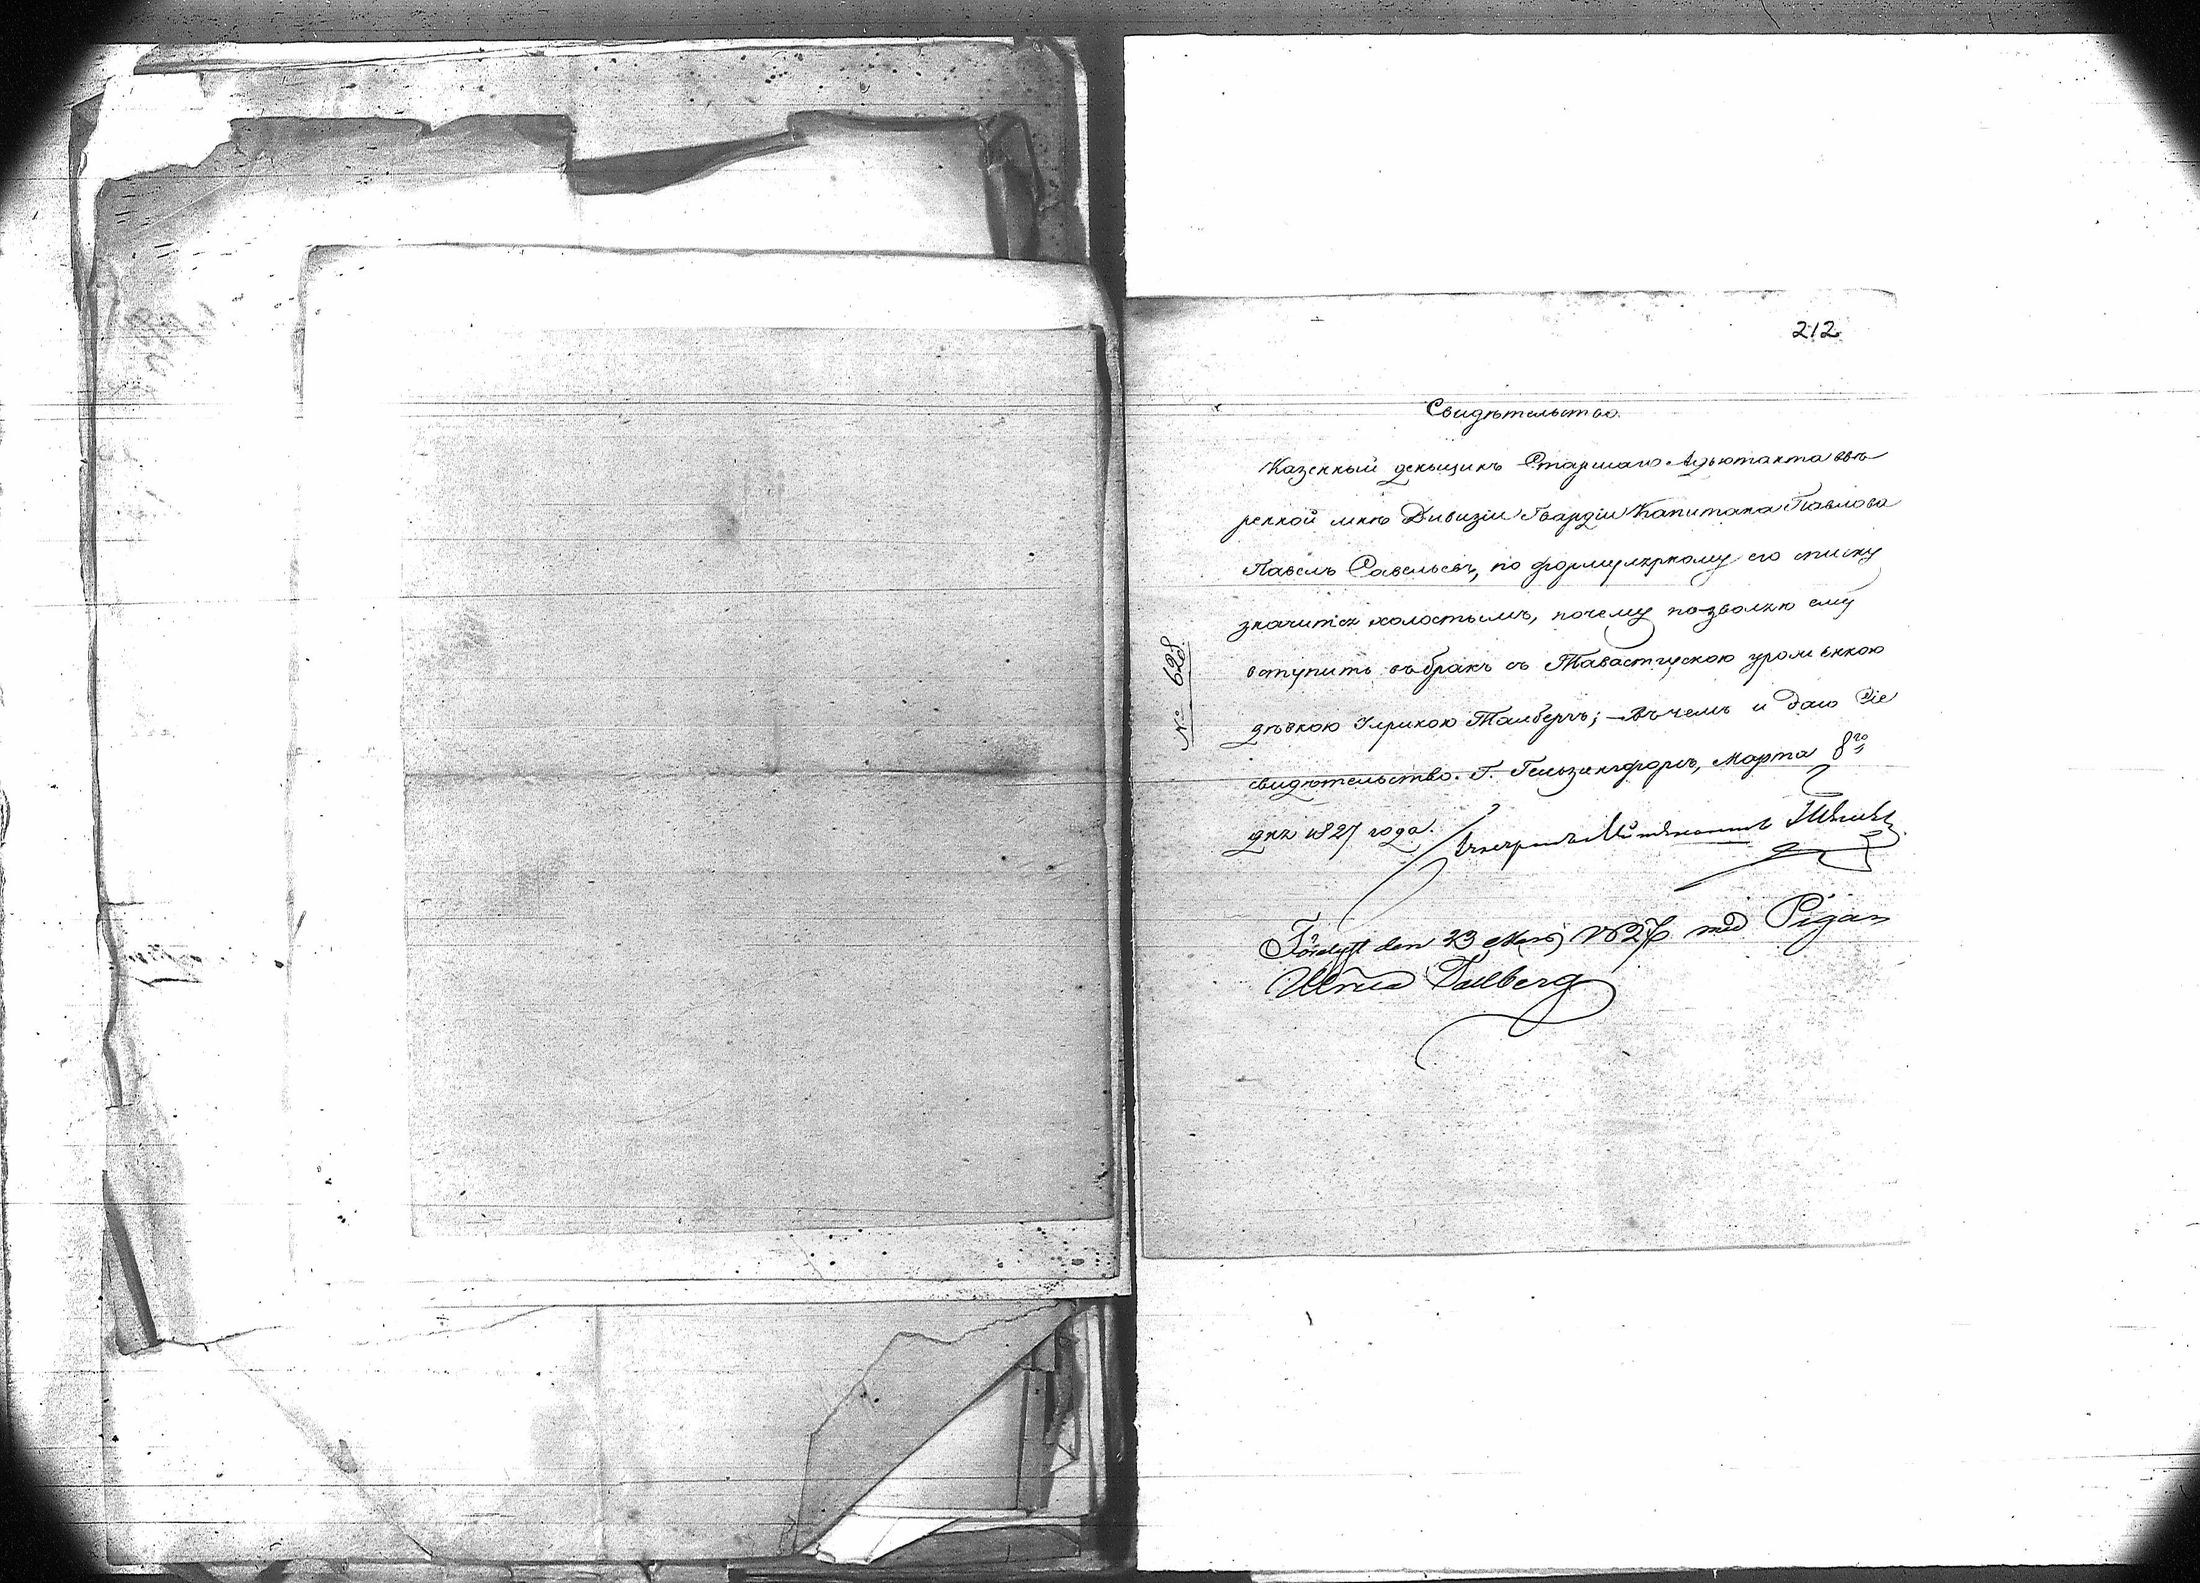 212
Свидѣтельство.
Казенный деньщикъ Старшаго Адъютанта ввѣ
ренной мнѣ Дивизіи Гвардіи Капитана Павлова
Павелъ Савельевъ, по формулярному его списку
значится холостымъ, почему позволяю ему
вступить въ бракъ съ Тавастгускою уроженкою
дѣвкою Улрикою Талбергъ; — въ чемъ и даю Сіе
свидѣтельство. Г. Гельзингфорсъ, Марта 8го
дня 1827 года.
№ 628
den 23 Mars 1827 med Pigan
Ulrica Tallberg